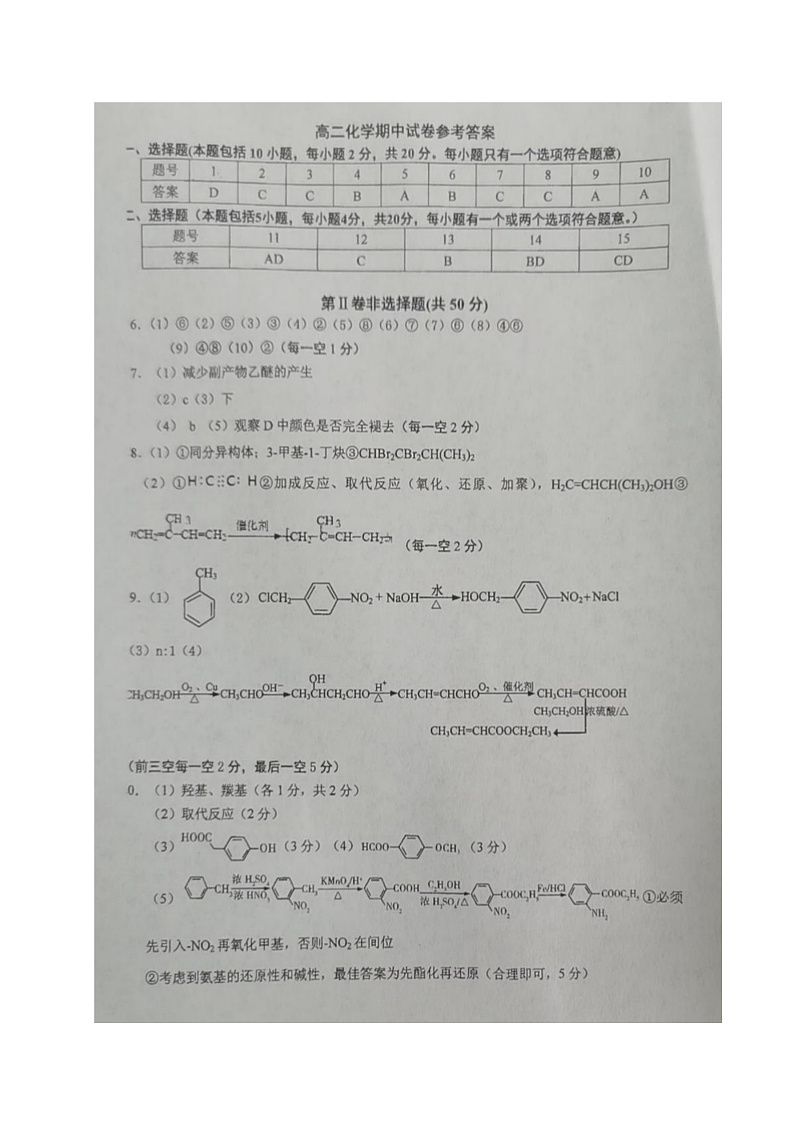 高二化学期中试卷参考答案
一、选择题(本题包括 10 小题，每小题 2 分，共 20 分。每小题只有一个选项符合题意)
题号 1 2 3 4 5 6 7 8 9 10
答案 D C C B A B C C A A
二、选择题（本题包括5小题，每小题4分，共20分，每小题有一个或两个选项符合题意。）
题号 11 12 13 14 15
答案 AD C B BD CD
第Ⅱ卷非选择题(共 50 分)
6.（1）⑥（2）⑤（3）③（4）②（5）⑧（6）⑦（7）⑥（8）④⑥
（9）④⑧（10）②（每一空 1 分）
7.（1）减少副产物乙醚的产生
（2）c（3）下
（4） b （5）观察 D 中颜色是否完全褪去（每一空 2 分）
8.（1）①同分异构体；3-甲基-1-丁炔③CHBr₂CBr₂CH(CH₃)₂
（2）①H:C⫶⫶C:H②加成反应、取代反应（氧化、还原、加聚），H₂C=CHCH(CH₃)₂OH③
CH 3 CH 3
nCH₂=C-CH=CH₂ 催化剂→ -[CH₂-C=CH-CH₂]-n （每一空 2 分）
CH₃
9.（1） （2）ClCH₂- -NO₂ + NaOH 水 △ →HOCH₂- -NO₂+NaCl
（3）n:1（4）
CH₃CH₂OH O₂、Cu △ →CH₃CHO OH⁻→CH₃CHCH₂CHO OH H⁺ △ →CH₃CH=CHCHO O₂、催化剂 △ → CH₃CH=CHCOOH
CH₃CH₂OH 浓硫酸/△
CH₃CH=CHCOOCH₂CH₃←
（前三空每一空 2 分，最后一空 5 分）
0.（1）羟基、羰基（各 1 分，共 2 分）
（2）取代反应（2 分）
（3）HOOC- -OH（3 分）（4）HCOO- -OCH₃（3 分）
（5） -CH₃ 浓 H₂SO₄ 浓 HNO₃ → -CH₃ NO₂ KMnO₄/H⁺ △ → -COOH NO₂ C₂H₅OH 浓 H₂SO₄/△ → -COOC₂H₅ NO₂ Fe/HCl → -COOC₂H₅ NH₂ ①必须
先引入-NO₂ 再氧化甲基，否则-NO₂ 在间位
②考虑到氨基的还原性和碱性，最佳答案为先酯化再还原（合理即可，5 分）